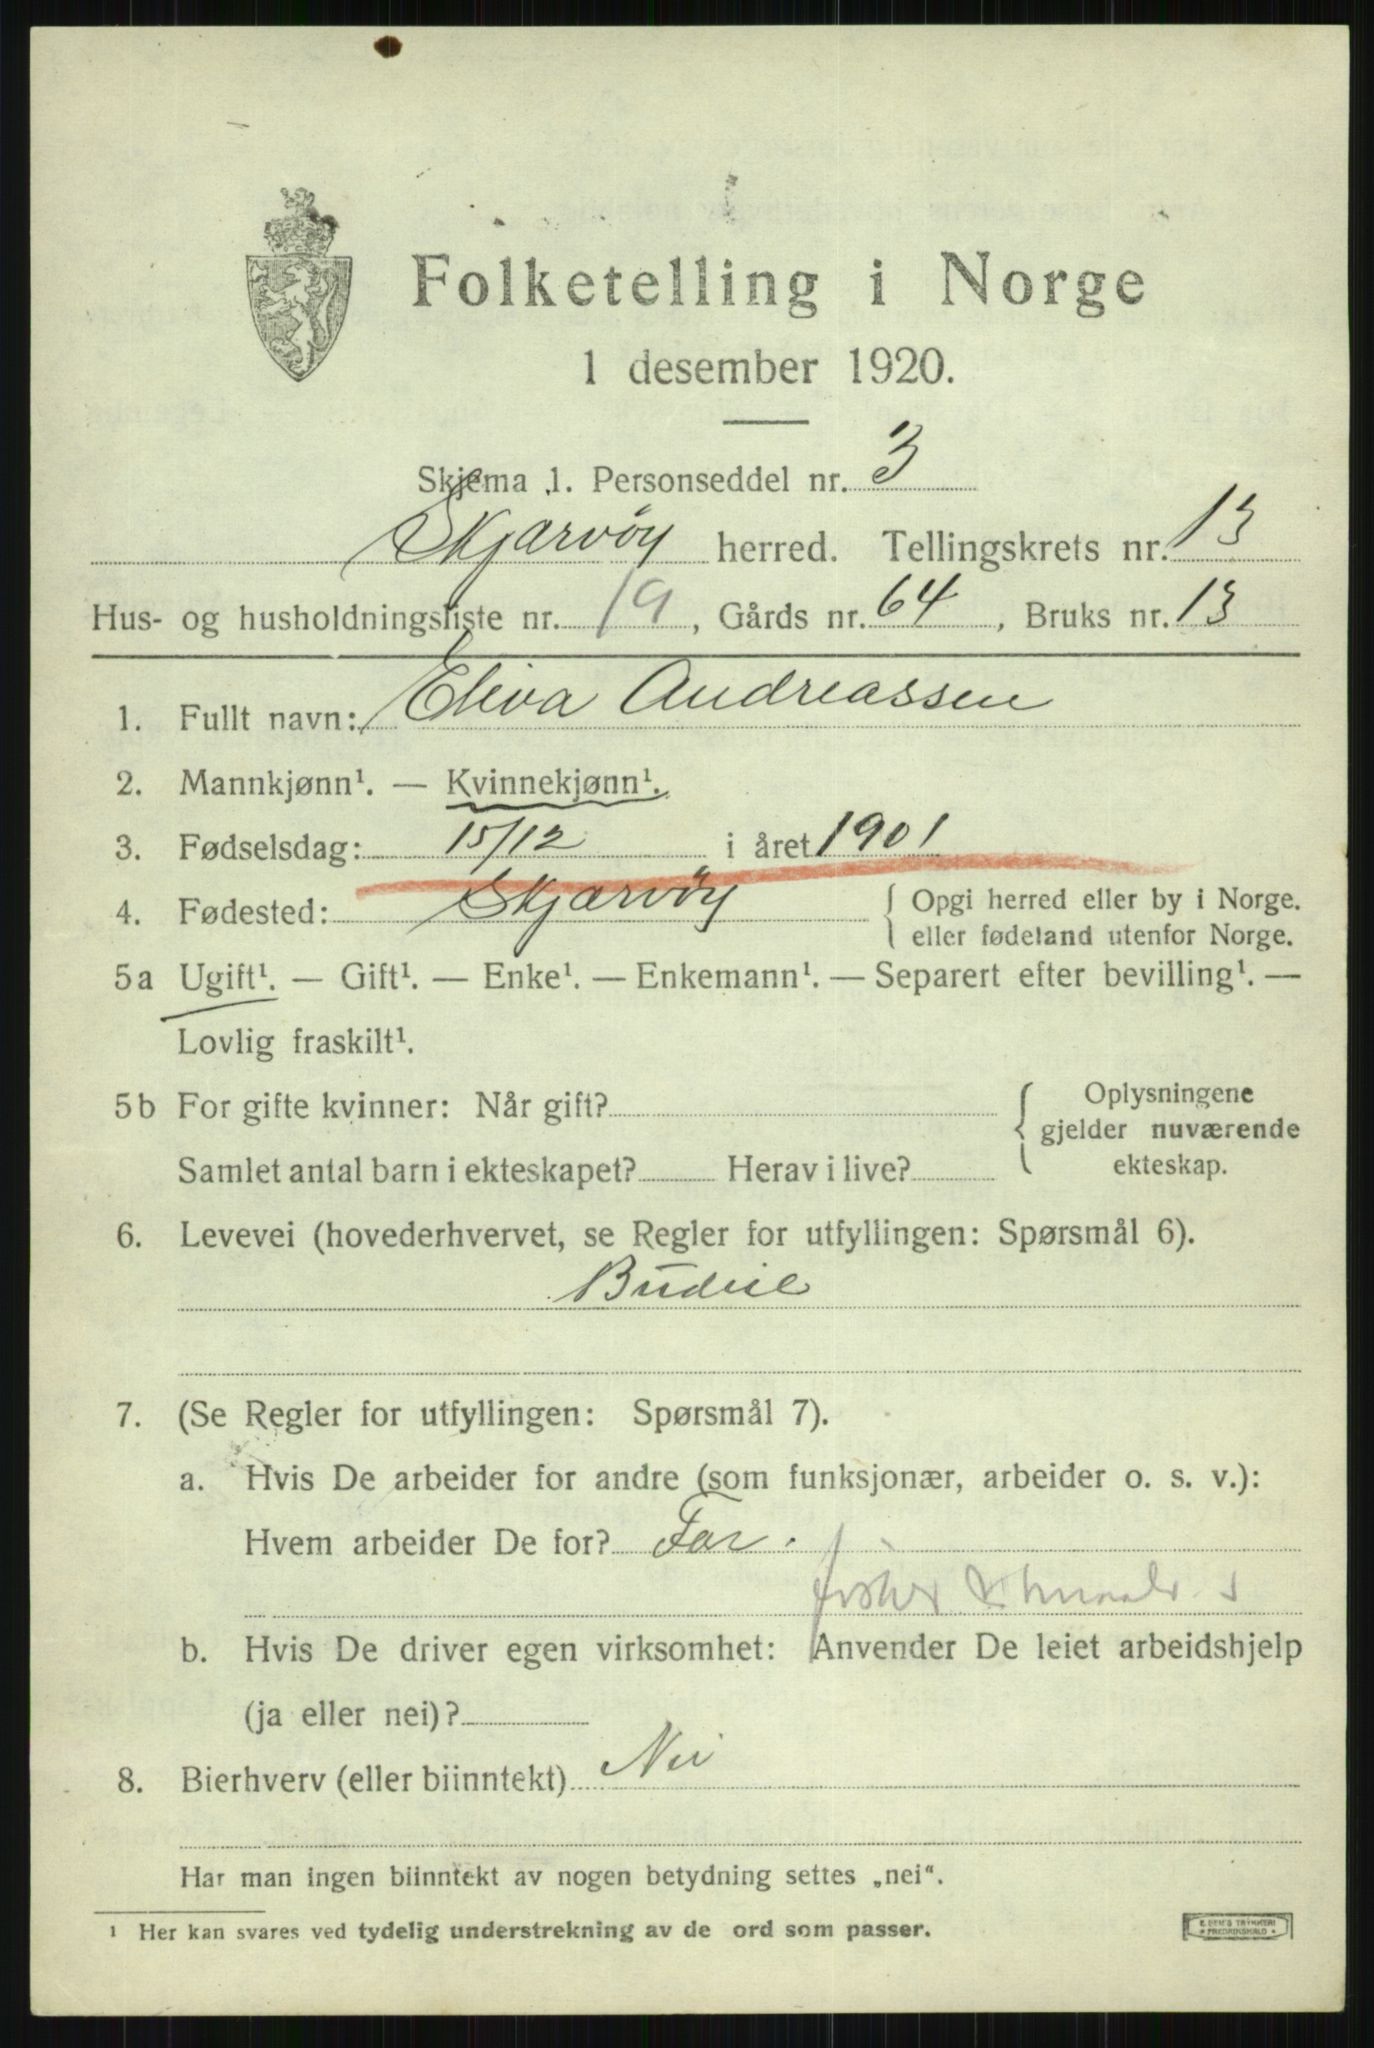 Folketelling i Norge
1 desember 1920.
Skjema 1. Personseddel nr. 3
Skjærvøy herred. Tellingskrets nr. 13
Hus- og husholdningsliste nr. 19, Gårds nr. 64, Bruks nr. 13
1. Fullt navn: Eliva Andreassen
2. Mannkjønn¹. — Kvinnekjønn¹.
3. Fødselsdag: 15/12 i året 1901
4. Fødested: Skjærvöy { Opgi herred eller by i Norge.
eller fødeland utenfor Norge.
5a Ugift¹. — Gift¹. — Enke¹. — Enkemann¹. — Separert efter bevilling¹. —
Lovlig fraskilt¹.
5b For gifte kvinner: Når gift? { Oplysningene
gjelder nuværende
Samlet antal barn i ekteskapet? Herav i live? ekteskap.
6. Levevei (hovederhvervet, se Regler for utfyllingen: Spørsmål 6).
Budeie
7. (Se Regler for utfyllingen: Spørsmål 7).
a. Hvis De arbeider for andre (som funksjonær, arbeider o. s. v.):
Hvem arbeider De for? Far.
fisker &
b. Hvis De driver egen virksomhet: Anvender De leiet arbeidshjelp
(ja eller nei)?
8. Bierhverv (eller biinntekt) Nei
Har man ingen biinntekt av nogen betydning settes „nei“.
¹ Her kan svares ved tydelig understrekning av de ord som passer.
E. SEM'S TRYKKERI
FREDRIKSHALD